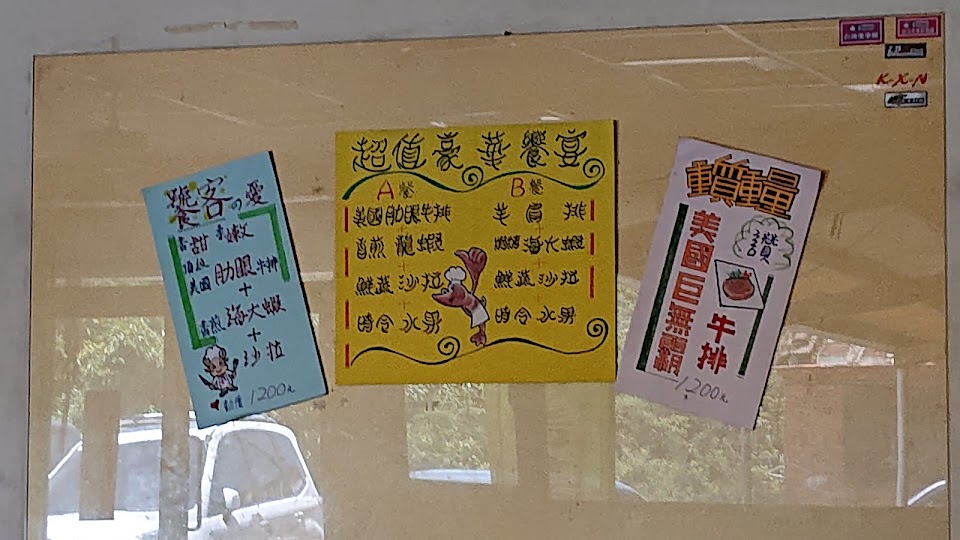 饕客の愛
香甜 香嫩
頂級
美國 肋眼牛排
+
香煎 海大蝦
+
沙拉
1200元
超值豪華饗宴
A餐
美國肋眼牛排
香煎龍蝦
鮮蔬沙拉
時令水果
B餐
羊肩排
海大蝦
鮮蔬沙拉
時令水果
重質重量
讚
美國巨無霸
牛排
1200元
K-K-N